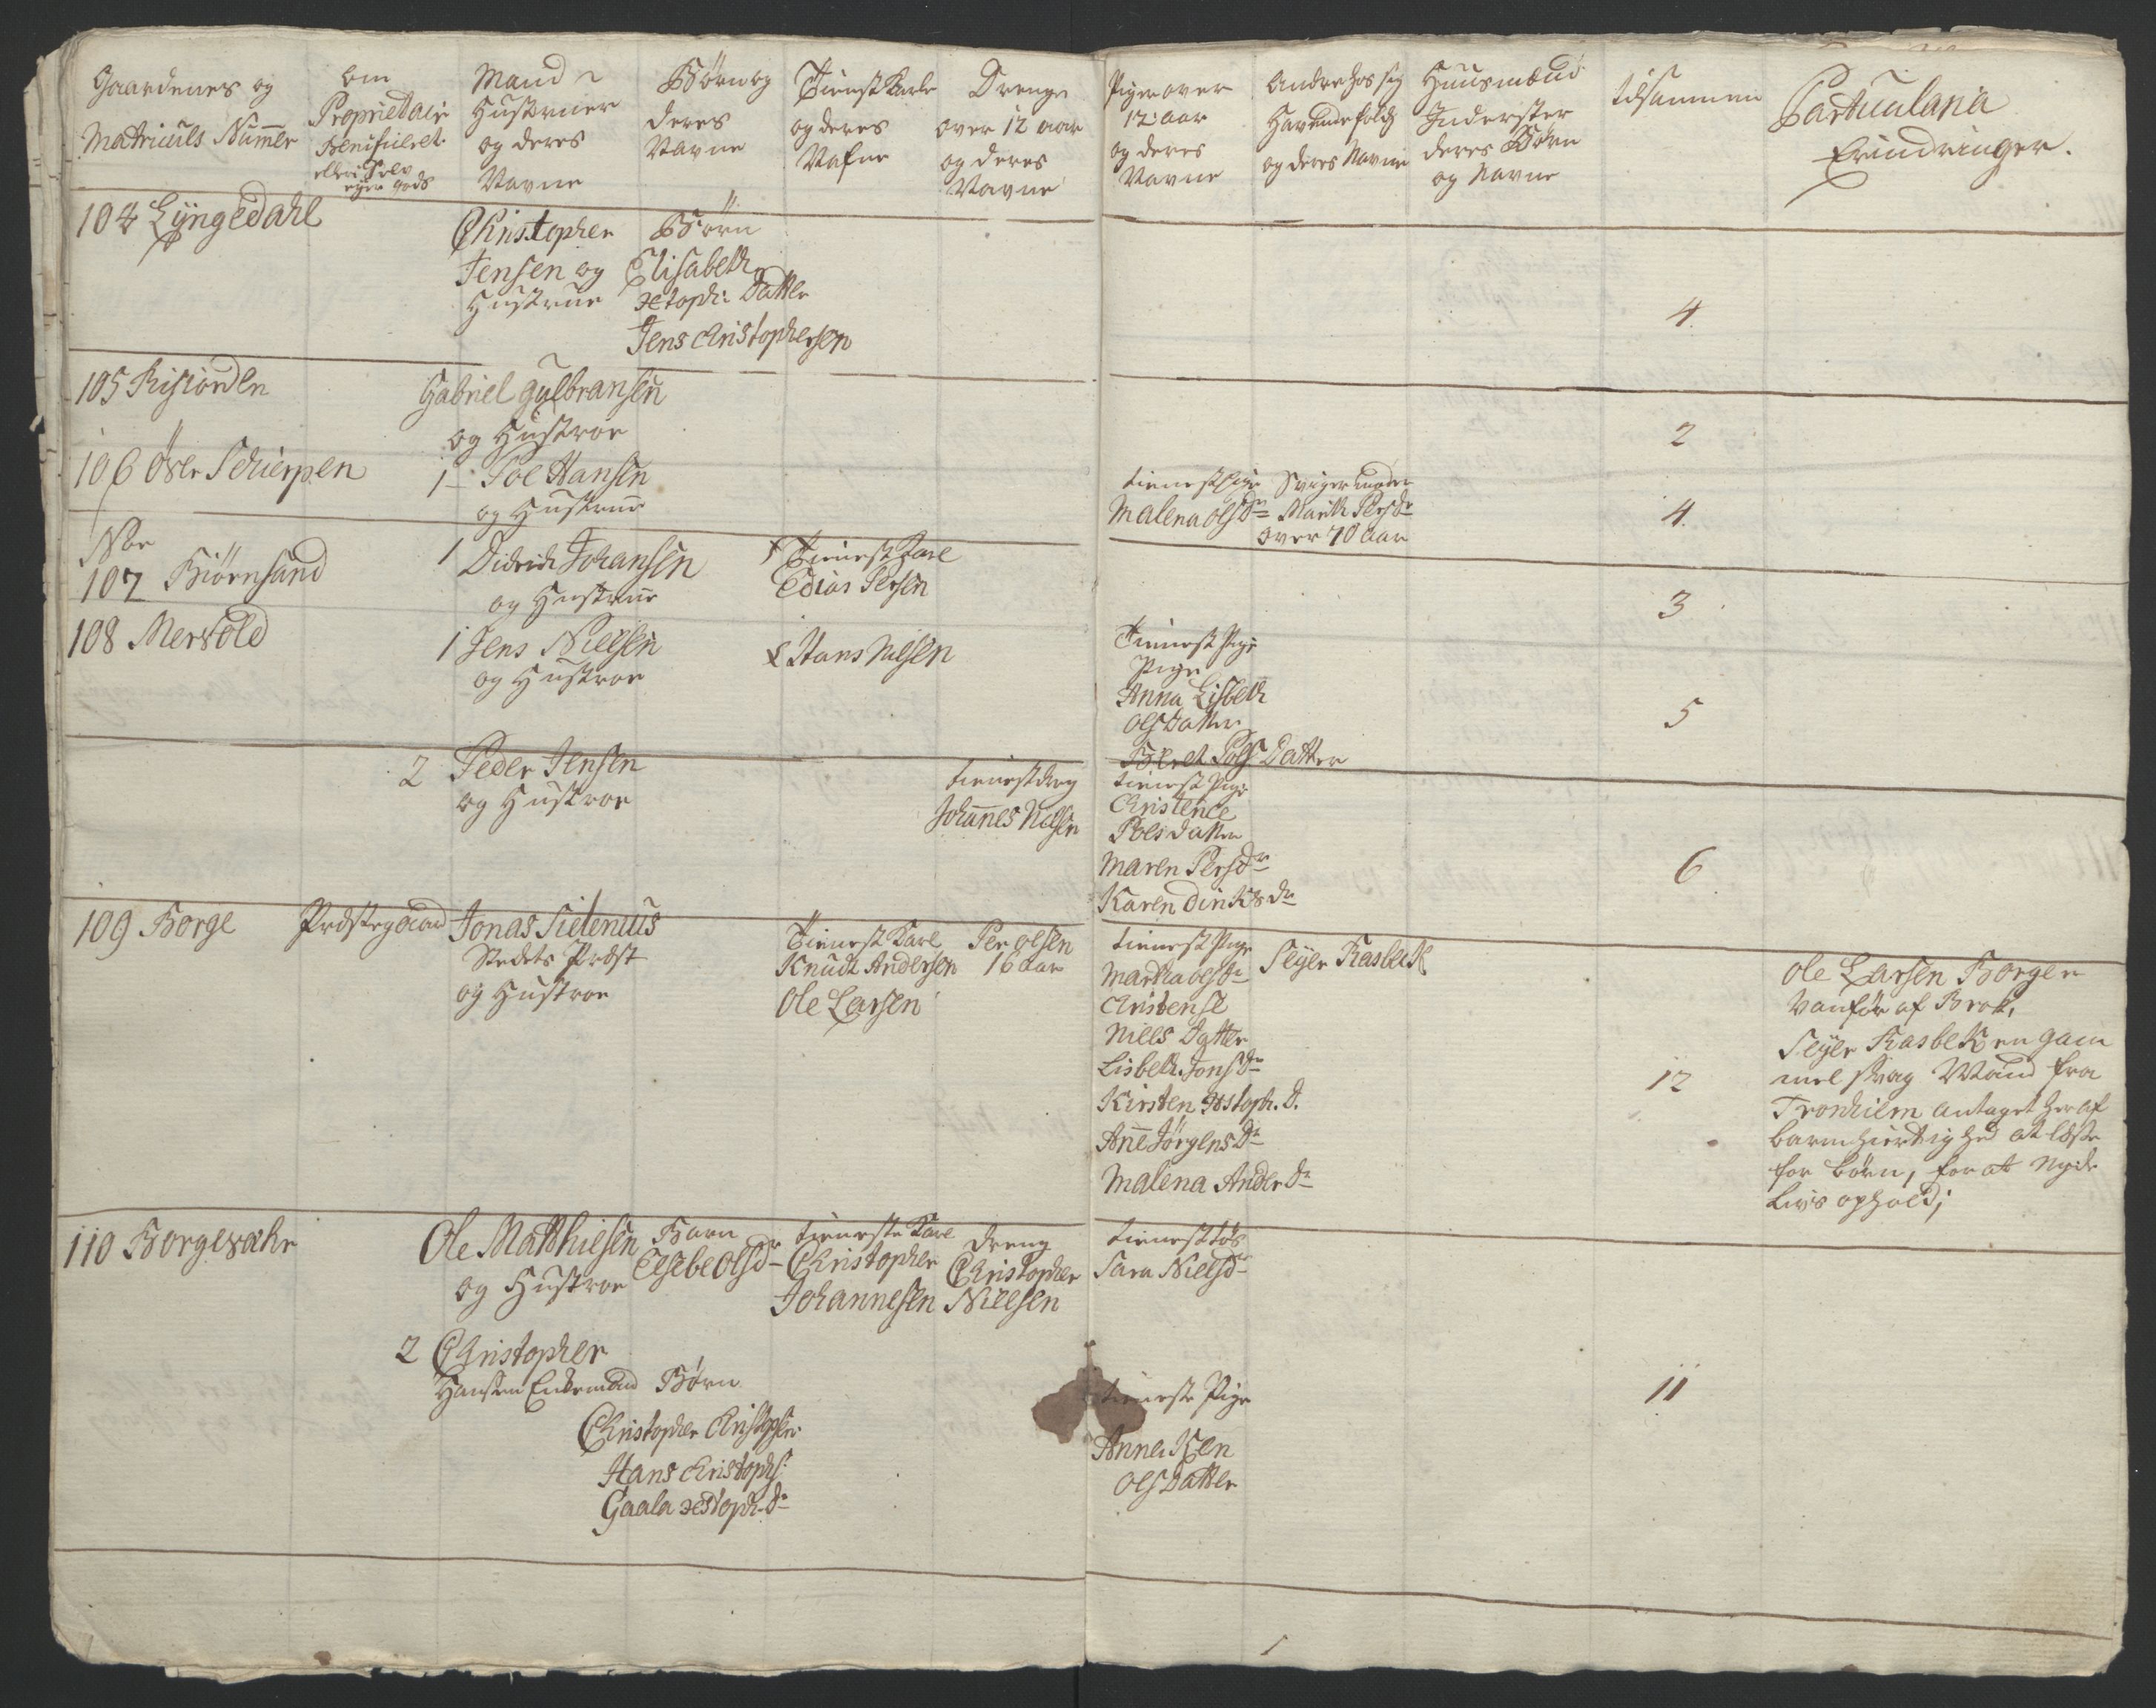 Gaardenes og
Matriculs Nummer
om
Proprietair
Benificeret
eller Selv
eyer gods
Mand
Hustruer
og deres
Navne
Børn og
deres
Navne
Tienest Karle
og deres
Nafne
Drenge
over 12 aar
og deres
Navne
Piger over
12: aar
og deres
Navne
Andre hos sig
Havende folch
og deres Navne
Huusmænd
Inderster
deres Børn
og Navne
tilsammen
Particularia
Erindringer.
104 Lyngedahl
Christopher
Jensen og
Hustrue
Børn
Elisabeth
xstoph: Datter
Jens Christophersen
4
105 Risiorden
Gabriel gulbransen
og Hustroe
2
106 Øsr Schierpen
1 Poel Hansen
og Hustrue
tienest Pige
Malena olsdr
Svigermoder
Marith Persdr
over 70 aar
4.
Nor
107 Biørnsand
1 Didrich Johansen
og Hustrue
1 Tienest Karl
Edias Persen
3
108 Mervold
1 Jens Nielsen
og Hustroe
Hans Nilsen
Tienest Pige
Pige
Anna Lisbeth
olsdatter
Beret Pols Datter
5
2 Peder Jensen
og Hustroe
tienestdreng
Johannes Nilsen
tienest Pige
Christence
Poelsdatter
Maren Persdr
Karen Dirksdr
6
109 Borge
Præstegaard
Jonas Sielenius
Stedets Præst
og Hustroe
Tienest Karl
Knudt Andersen
Ole Larsen
Per olsen
16 aar
tienest Pige
Martha olsdr
Christense
Niels Datter
Lisbeth Jonsdr
Kirsten xstoph. D.
Anne Jørgensdr
Malena Anderdr
Seyer Rasbech
12
Ole Larsen Borger
Vanfør af Brok,
Seyer Rasbek en gam
mel svag Mand fra
Tronhiem antaget her af
barmhiertighed at læse
for børn, for at nyde
Livs ophold;
110 Borgevæhr
Ole Matthiesen
og Hustroe
Barn
Elsebe Olsdr
tieneste Karl
Christopher
Johannesen
dreng
Christopher
Nielsen
tienesttøs
Sara Nielsdr
2 Christopher
Hansen Enkemand
Børn
Christopher Christophsen
Hans Christophs:
Gaala xstoph. dr
tieneste Pige
Anneken
olsdatter
11